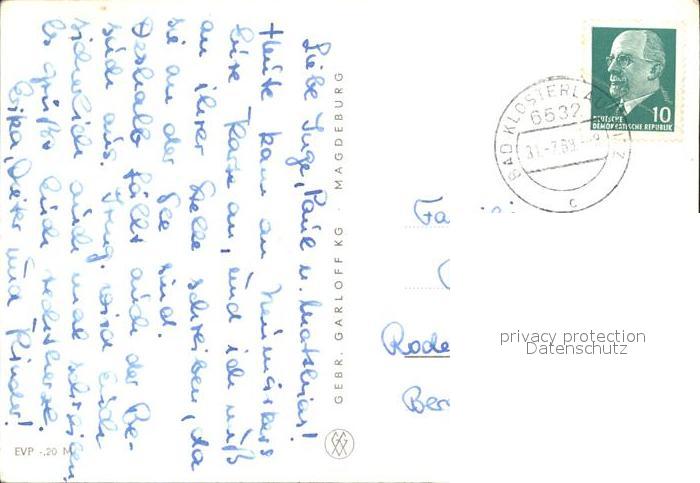 Liebe Inge, Paul u. Matthias!
Heute kam an Neumanns
Eure Karte an, und ich muß
an ihrer Stelle schreiben, da
sie an der See sind.
Deshalb fällt auch der Be-
such aus. Irmg. wird Euch
sicherlich auch mal schreiben.
Es grüßt Euch recht herzl.
Erika, Dieter und Kinder!
GEBR. GARLOFF KG · MAGDEBURG
EVP -,20 M
BAD KLOSTERLAUSNITZ
6532
31.-7.69.-
c
10
DEUTSCHE
DEMOKRATISCHE REPUBLIK
Fa
Rode
Ber
privacy protection
Datenschutz